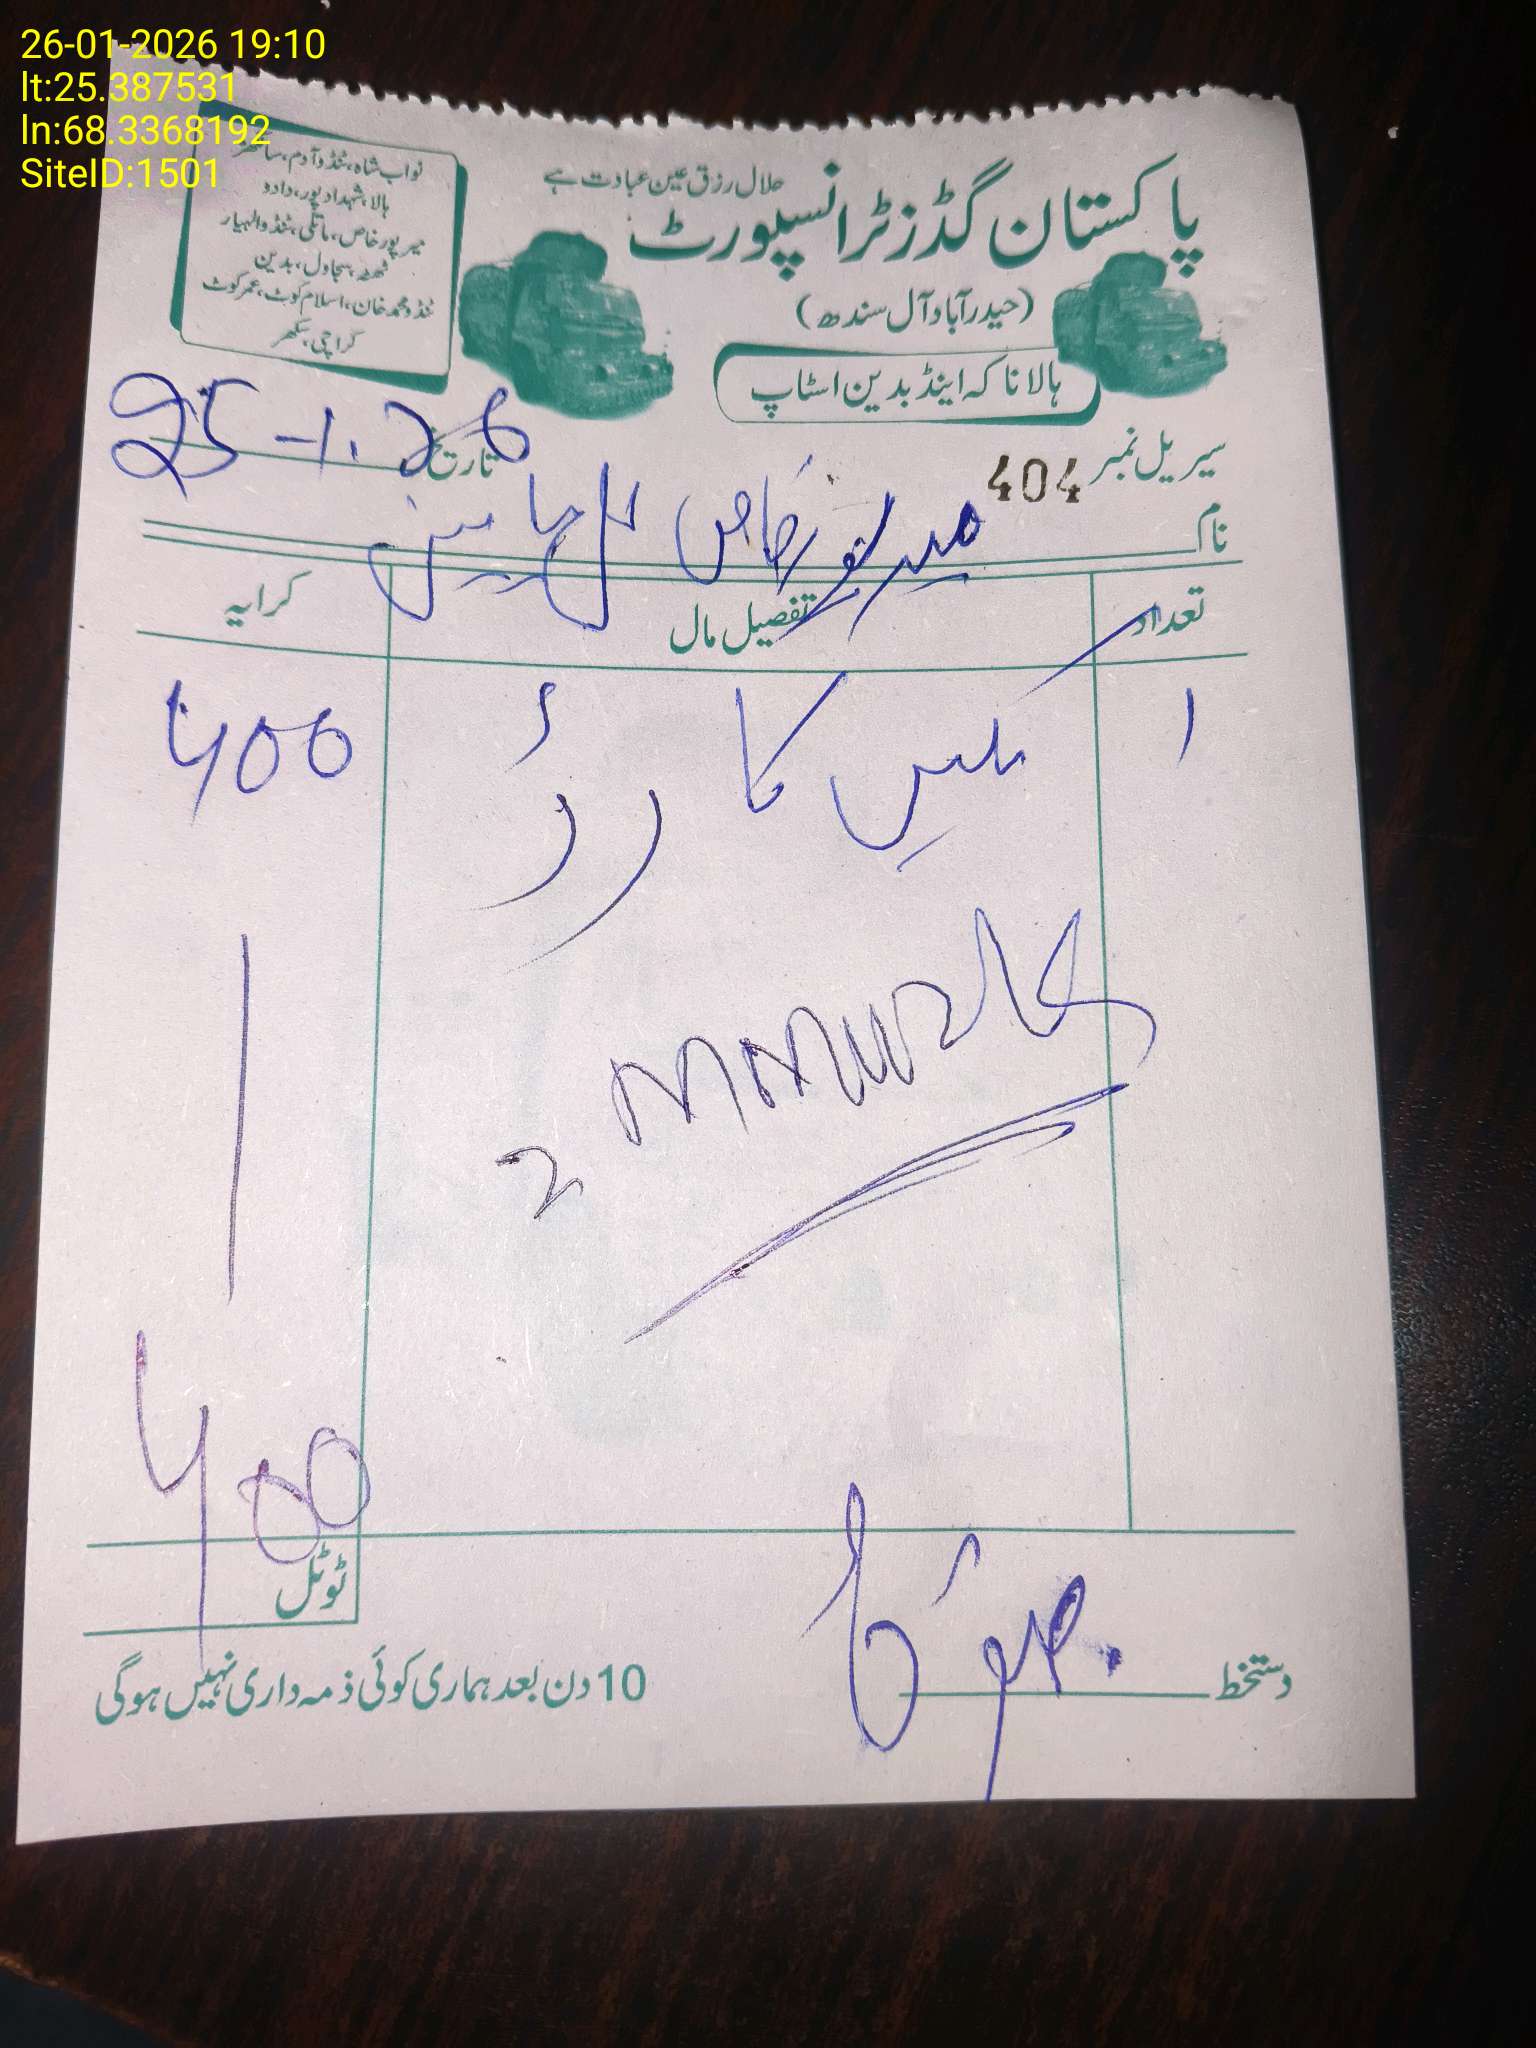 26-01-2026 19:10
lt:25.387531
ln:68.3368192
SiteID:1501
حلال رزق عین عبادت ہے
پاکستان گڈز ٹرانسپورٹ
(حیدرآباد و آل سندھ)
ہالا ناکہ اینڈ بدین اسٹاپ
نواب شاہ، ٹنڈوآدم، سانگھڑ
ہالا، شہدادپور، دادو
میرپورخاص، ماتلی، ٹنڈوالہیار
ٹھٹہ، سجاول، بدین
ٹنڈومحمدخان، اسلام کوٹ، عمرکوٹ
کراچی، سکھر
سیریل نمبر 404 تاریخ 25-1.26
نام میرپورخاص
تعداد تفصیل مال کرایہ
1 کا 400
2
400
ٹوٹل
دستخط
10 دن بعد ہماری کوئی ذمہ داری نہیں ہوگی